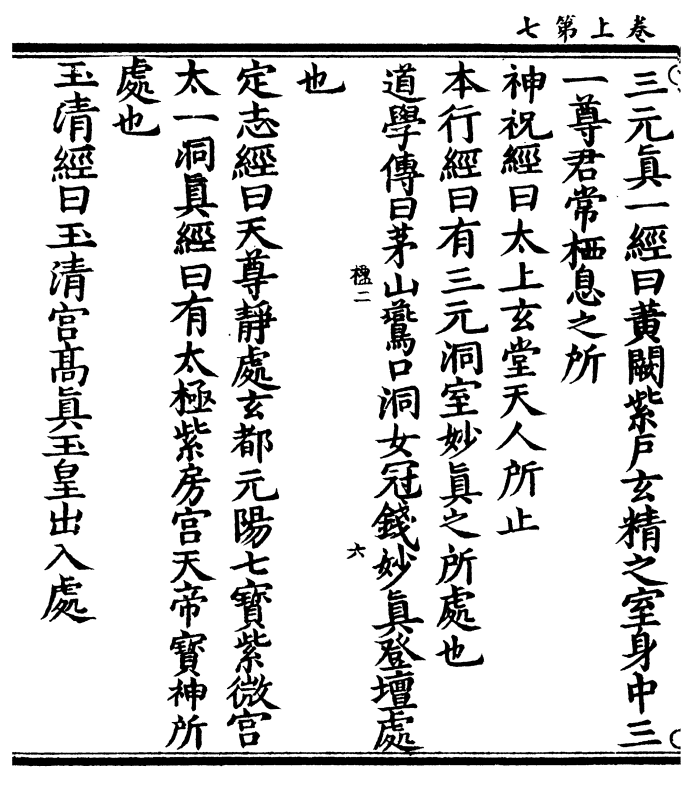 七第上卷
三元真一經曰黃闕紫戶玄精之室身中三
一尊君常栖息之所
神祝經曰太上玄堂天人所止
本行經曰有三元洞室妙真之所處也
道學傳曰茅山鷰口洞女冠錢妙真登壇處
楹二
六
也
定志經曰天尊靜處玄都元陽七寶紫微宮
太一洞真經曰有太極紫房宮天帝寶神所
處也
玉清經曰玉清宮高真玉皇出入處